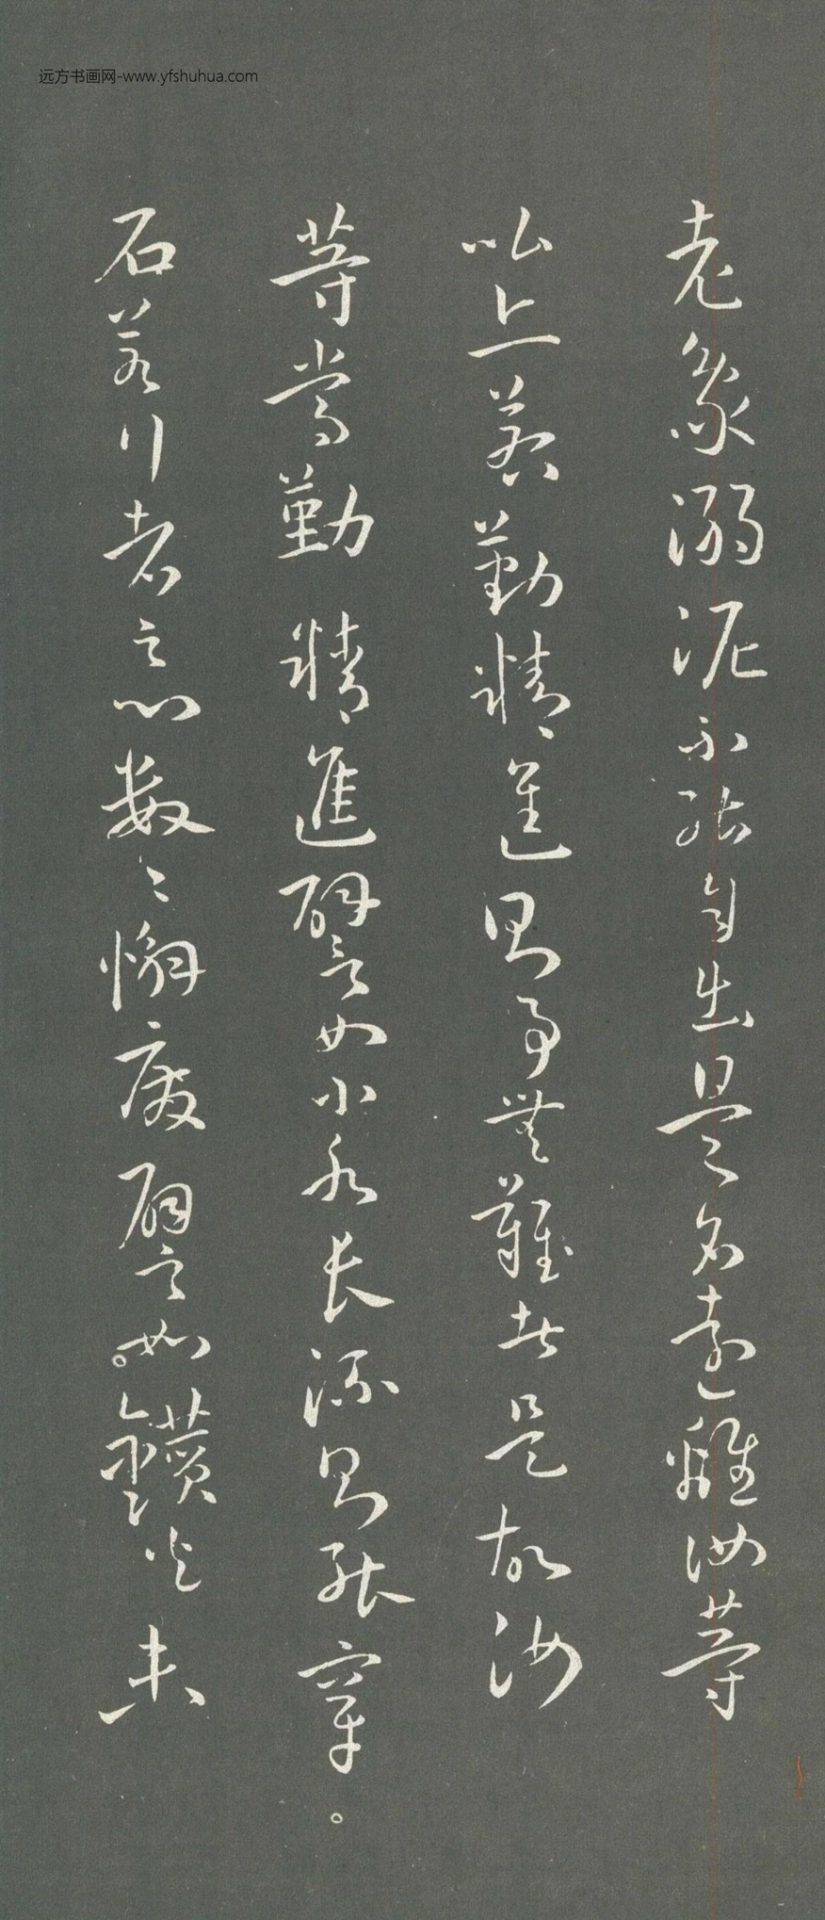 远方书画网-www.yfshuhua.com
老象溺泥不能自出是名遠離汝等
比丘若勤精進則事無難者是故汝
等當勤精進譬如小水長流則能穿
石若行者之心數〻懈廢譬如鑽火未